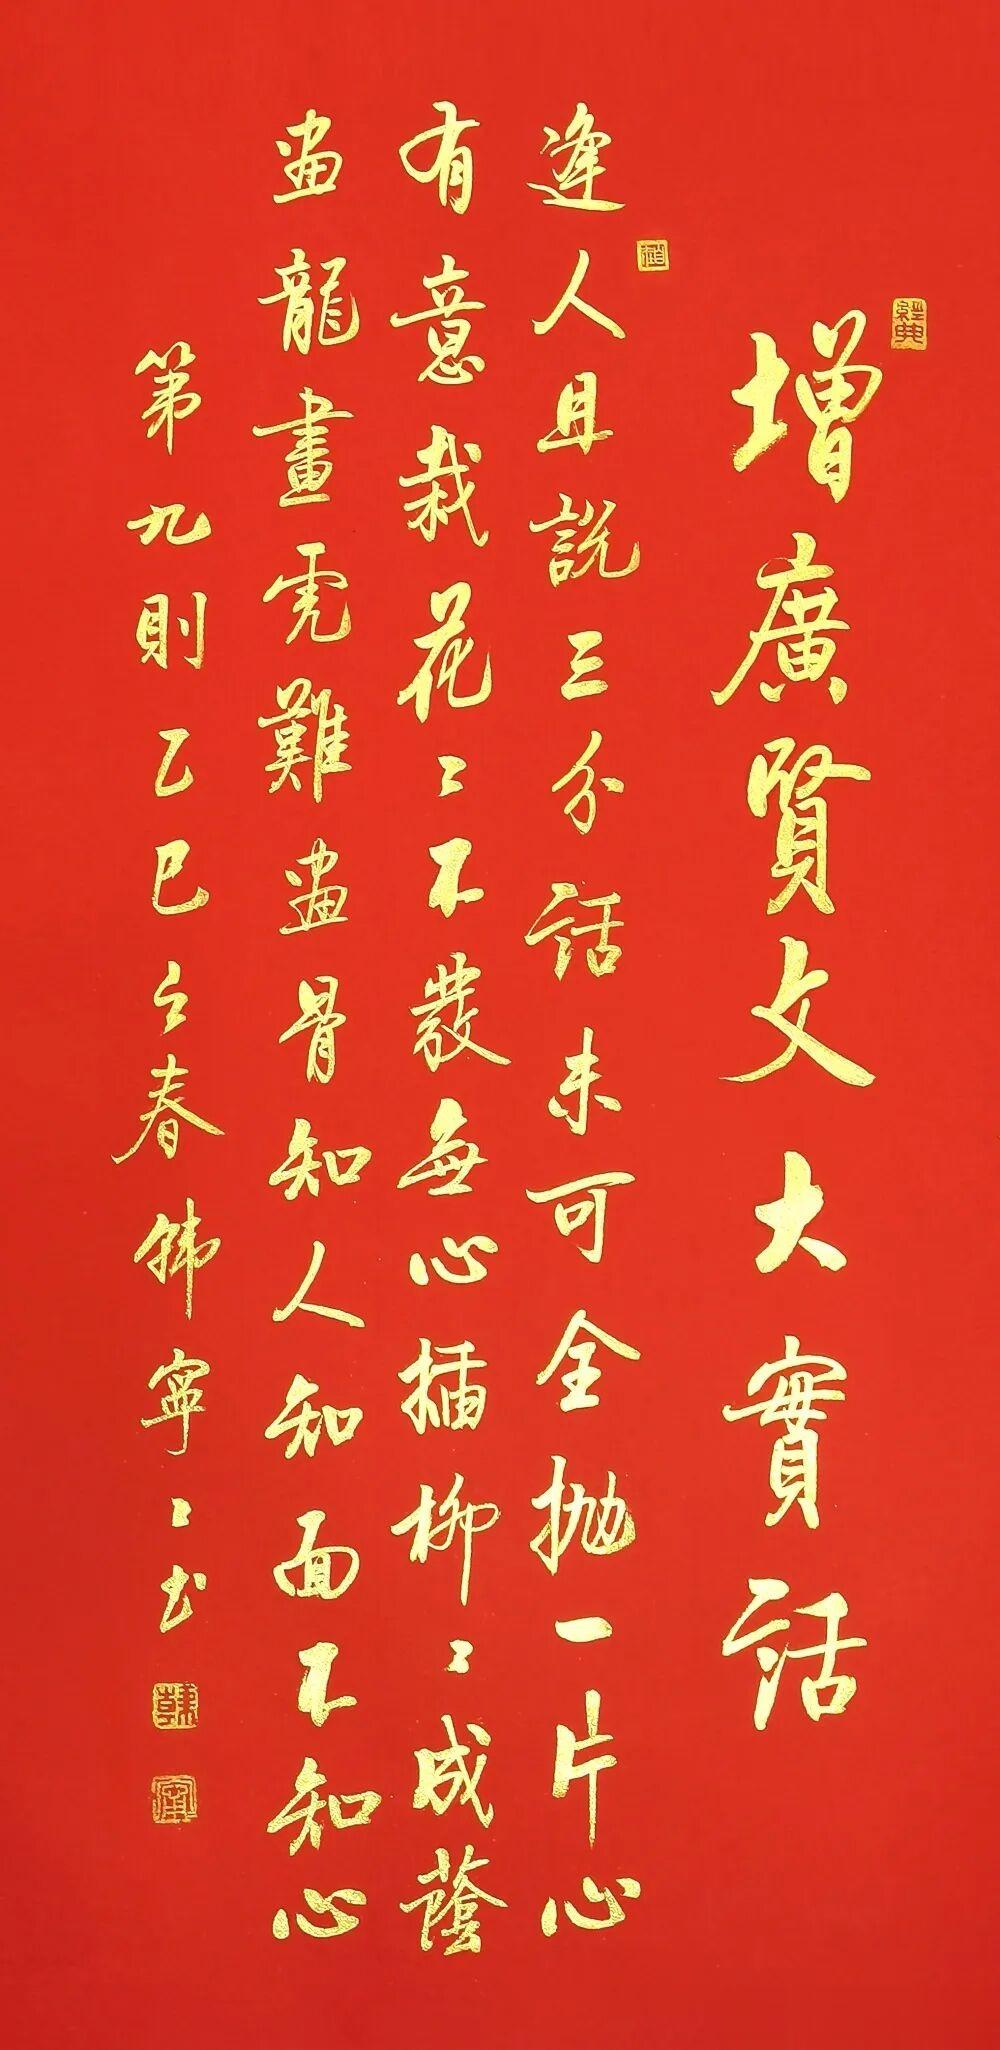 增廣賢文大實話
逢人且説三分話未可全抛一片心
有意栽花〻不發無心插柳〻成蔭
畫龍畫虎難畫骨知人知面不知心
第九則乙巳之春韩寧〻书
經典
韓
寧